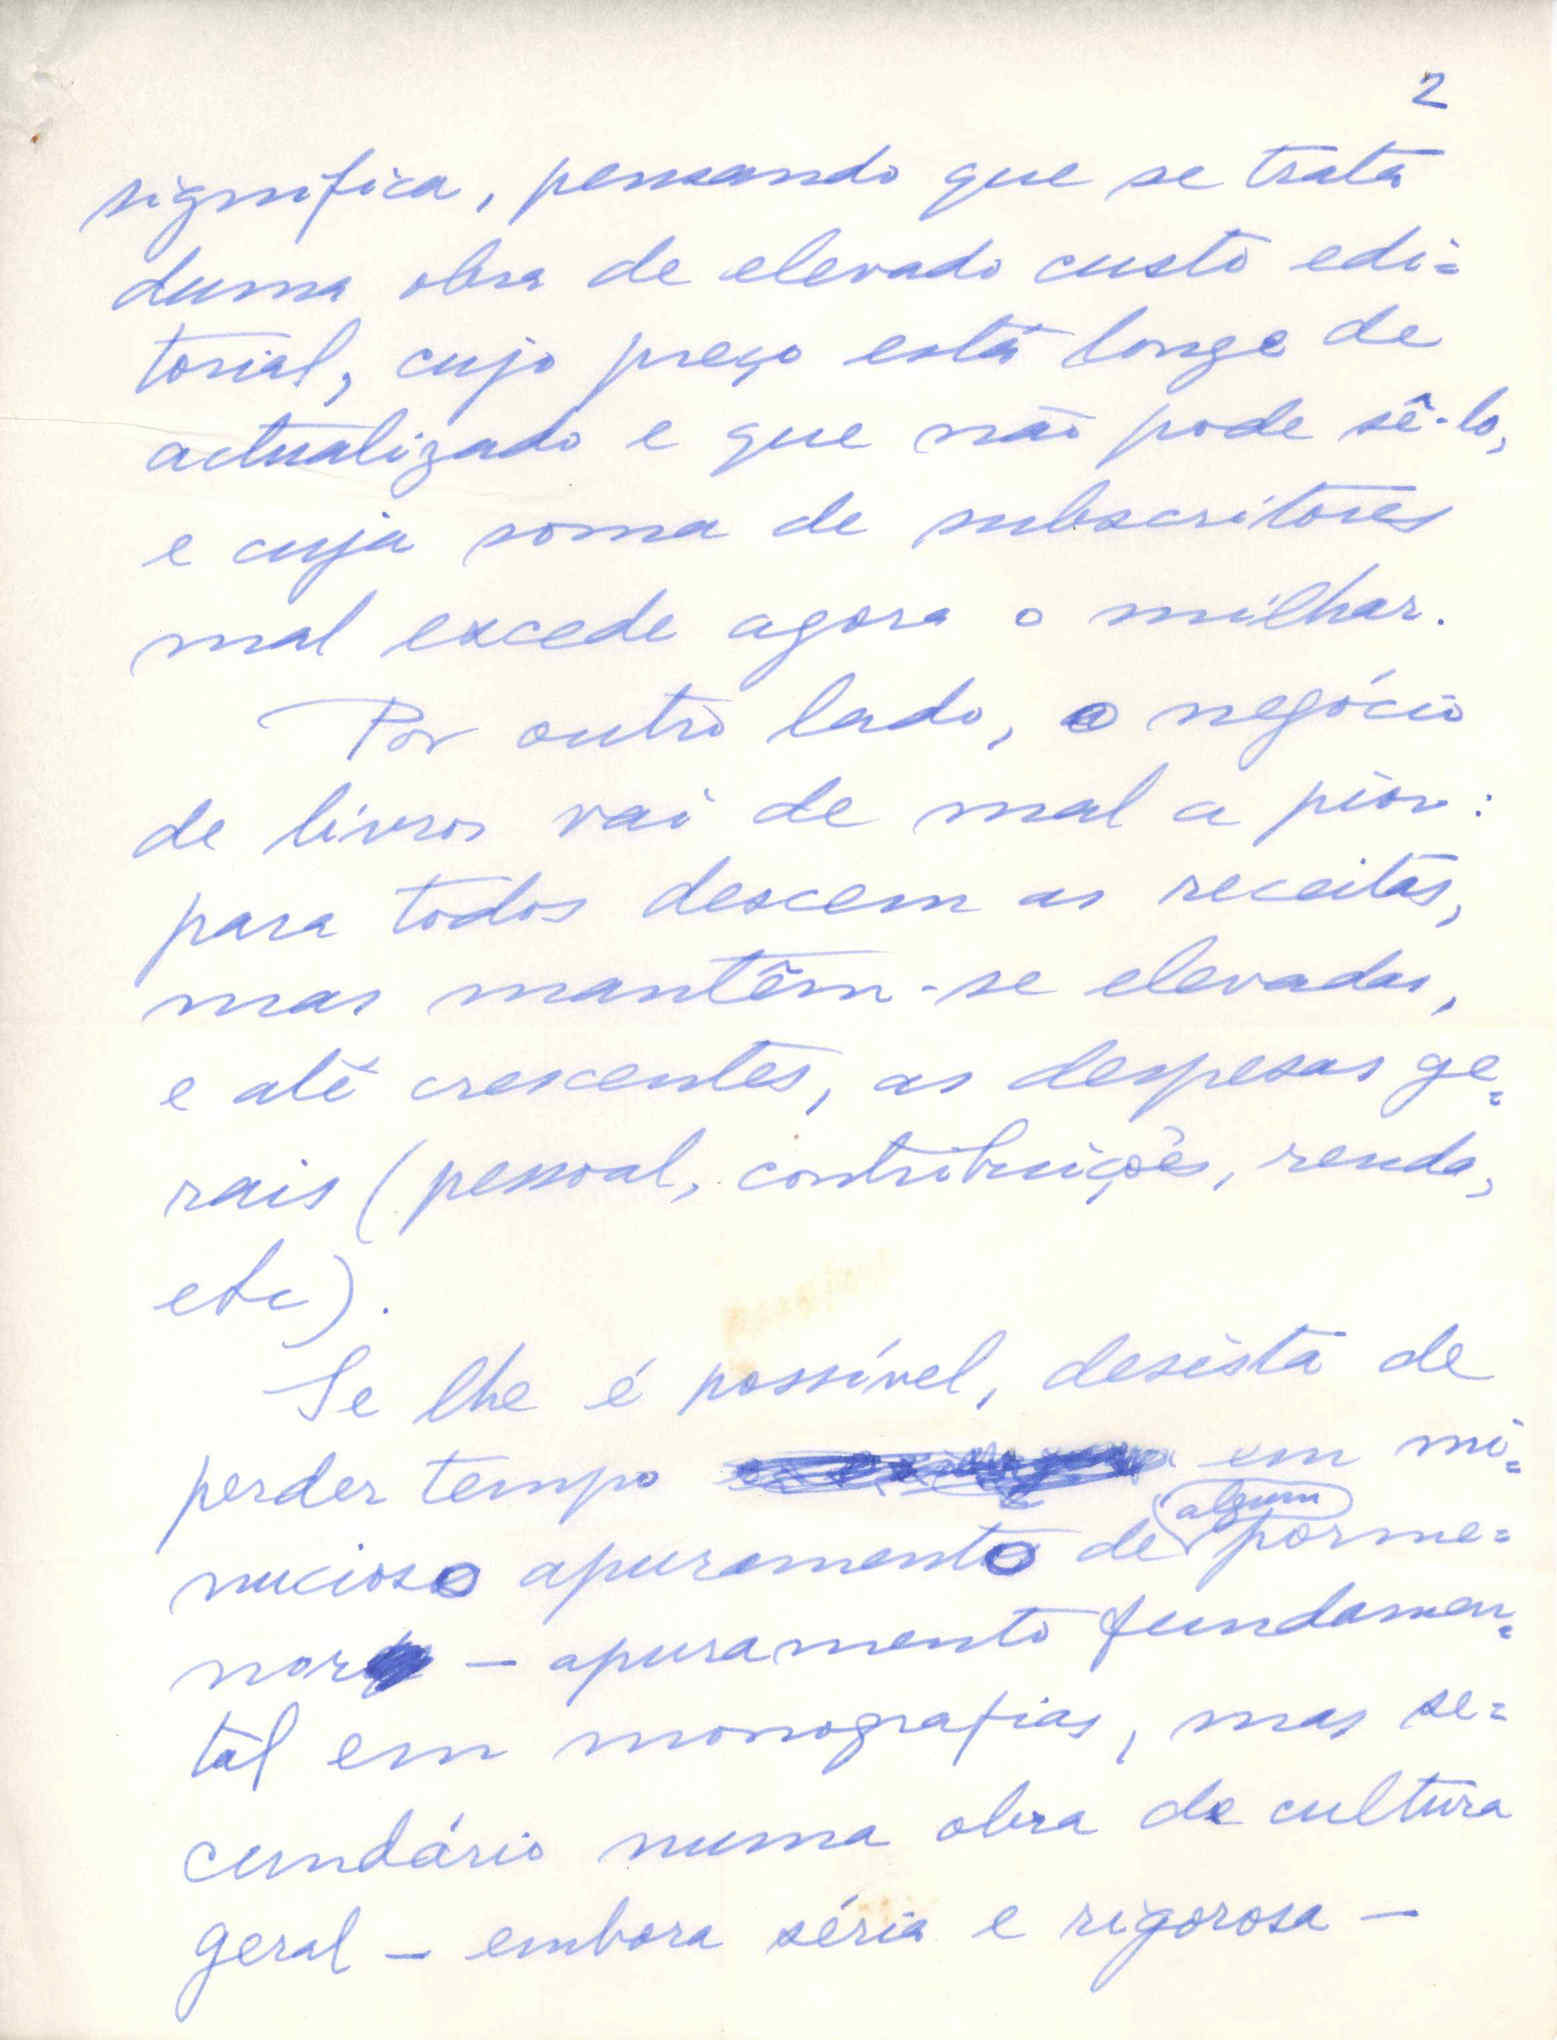 2
significa, pensando que se trata
duma obra de elevado custo edi=
torial, cujo preço está longe de
actualizado e que não pode sê-lo,
e cuja soma de subscritores
mal excede agora o milhar.
Por outro lado, o negócio
de livros vai de mal a pior:
para todos descem as receitas,
mas mantêm-se elevadas,
e até crescentes, as despesas ge=
rais (pessoal, contribuições, renda,
etc).
Se lhe é possível, desista de
perder tempo em mi=
nucioso apuramento de algum porme=
nor — apuramento fundamen=
tal em monografias, mas se=
cundário numa obra de cultura
geral — embora séria e rigorosa —